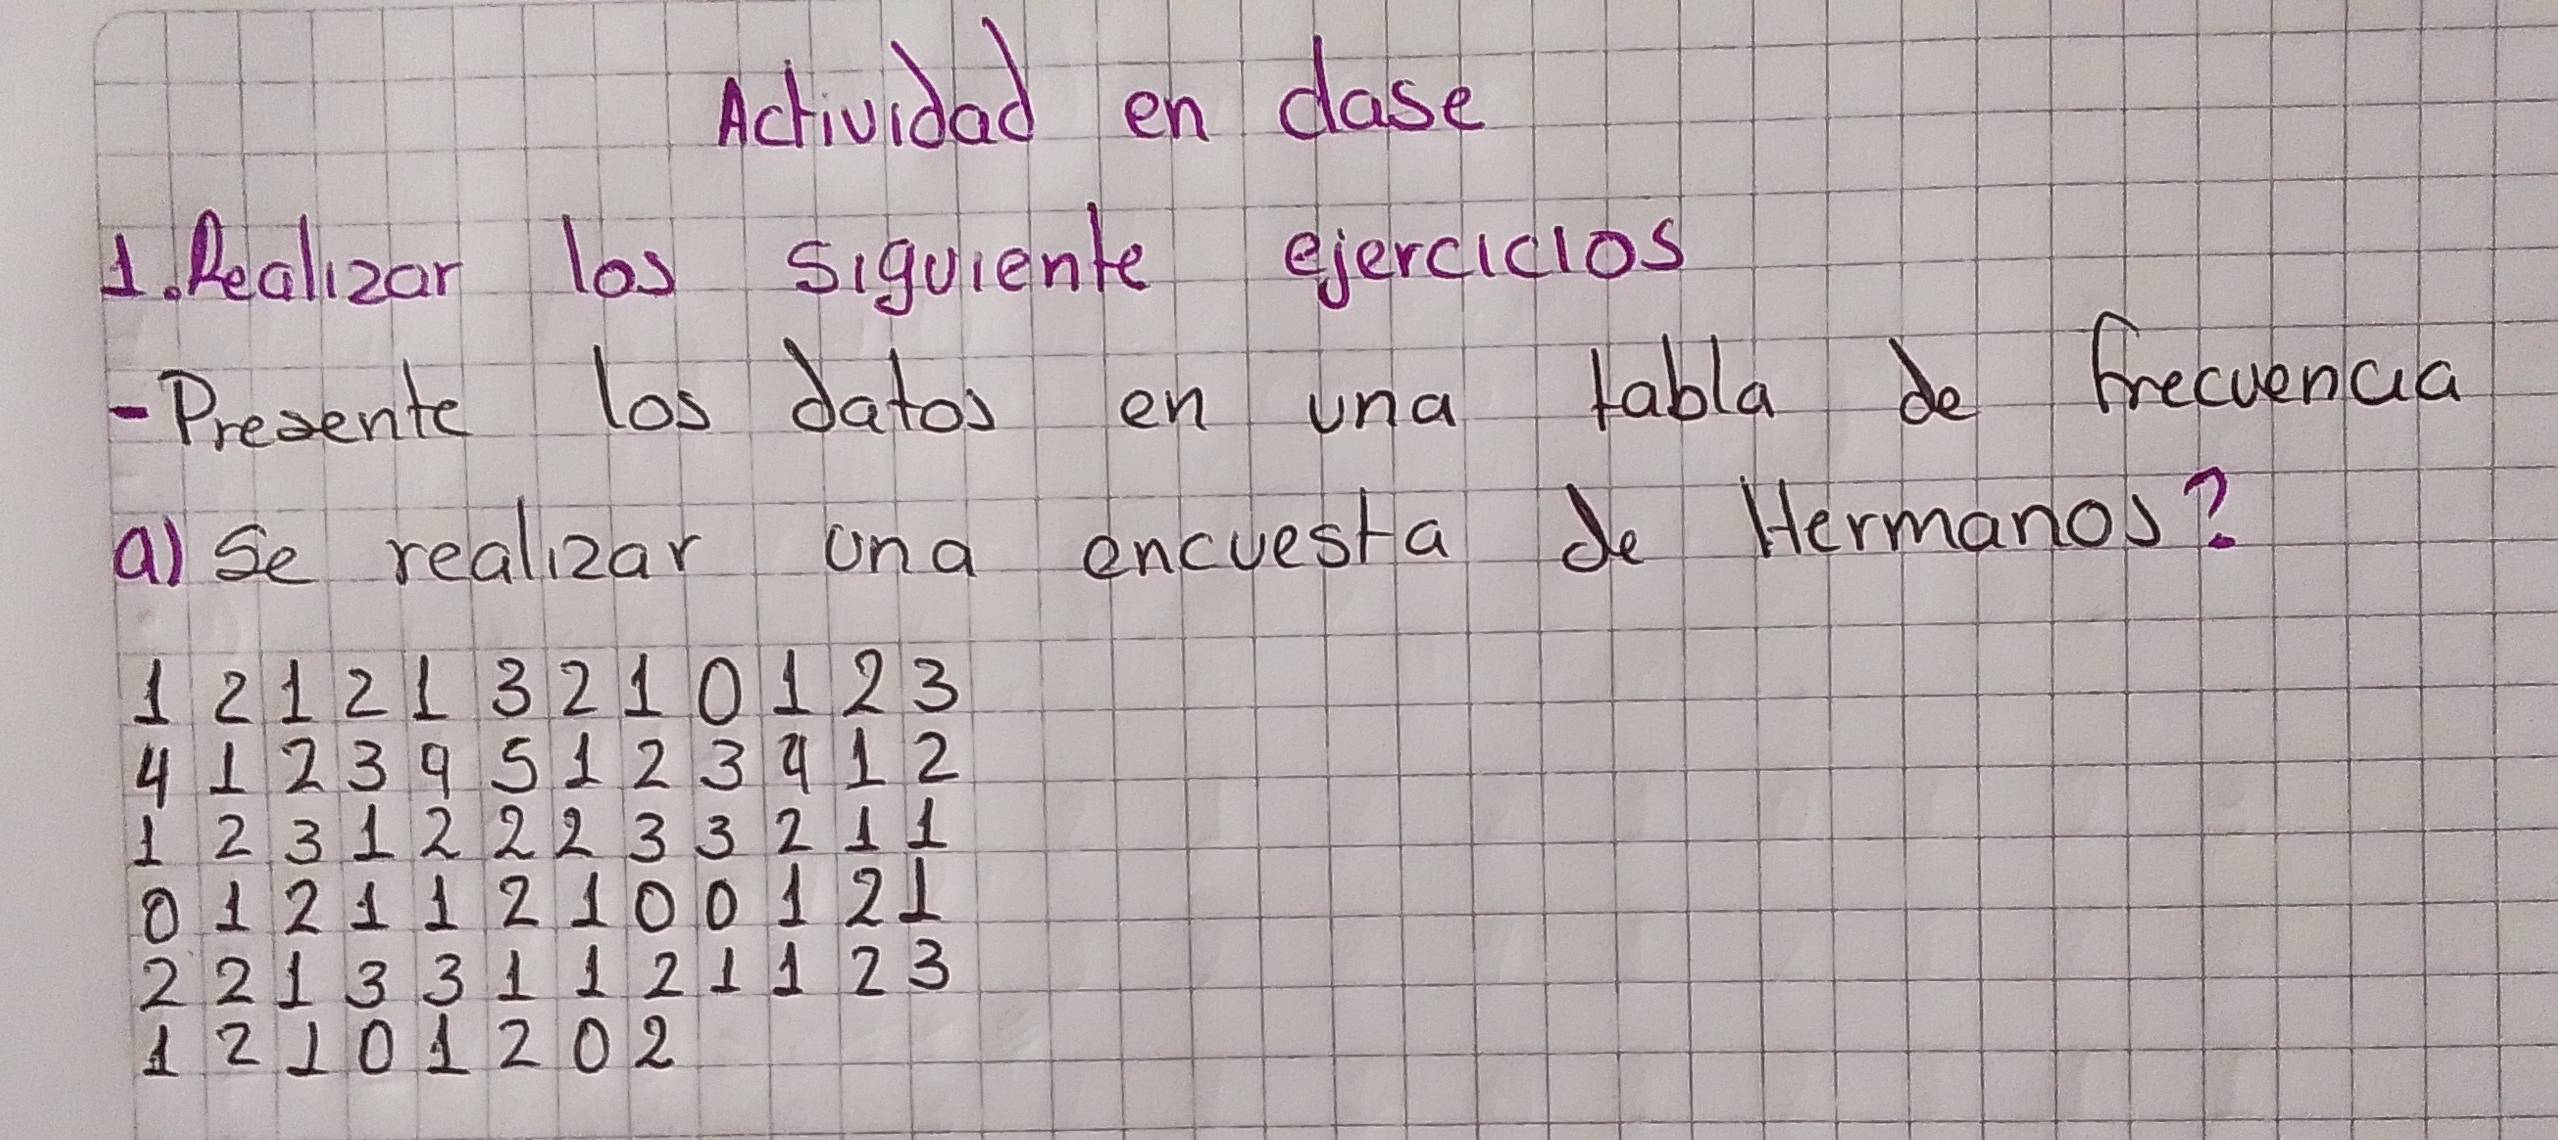 Actividad en clase
1. Realizar los siguiente ejercicios
- Presente los datos en una tabla de frecuencia
a) Se realizar una encuesta de Hermanos?
1 2 1 2 1 3 2 1 0 1 2 3
4 1 2 3 4 5 1 2 3 4 1 2
1 2 3 1 2 2 2 3 3 2 1 1
0 1 2 1 1 2 1 0 0 1 2 1
2 2 1 3 3 1 1 2 1 1 2 3
1 2 1 0 1 2 0 2